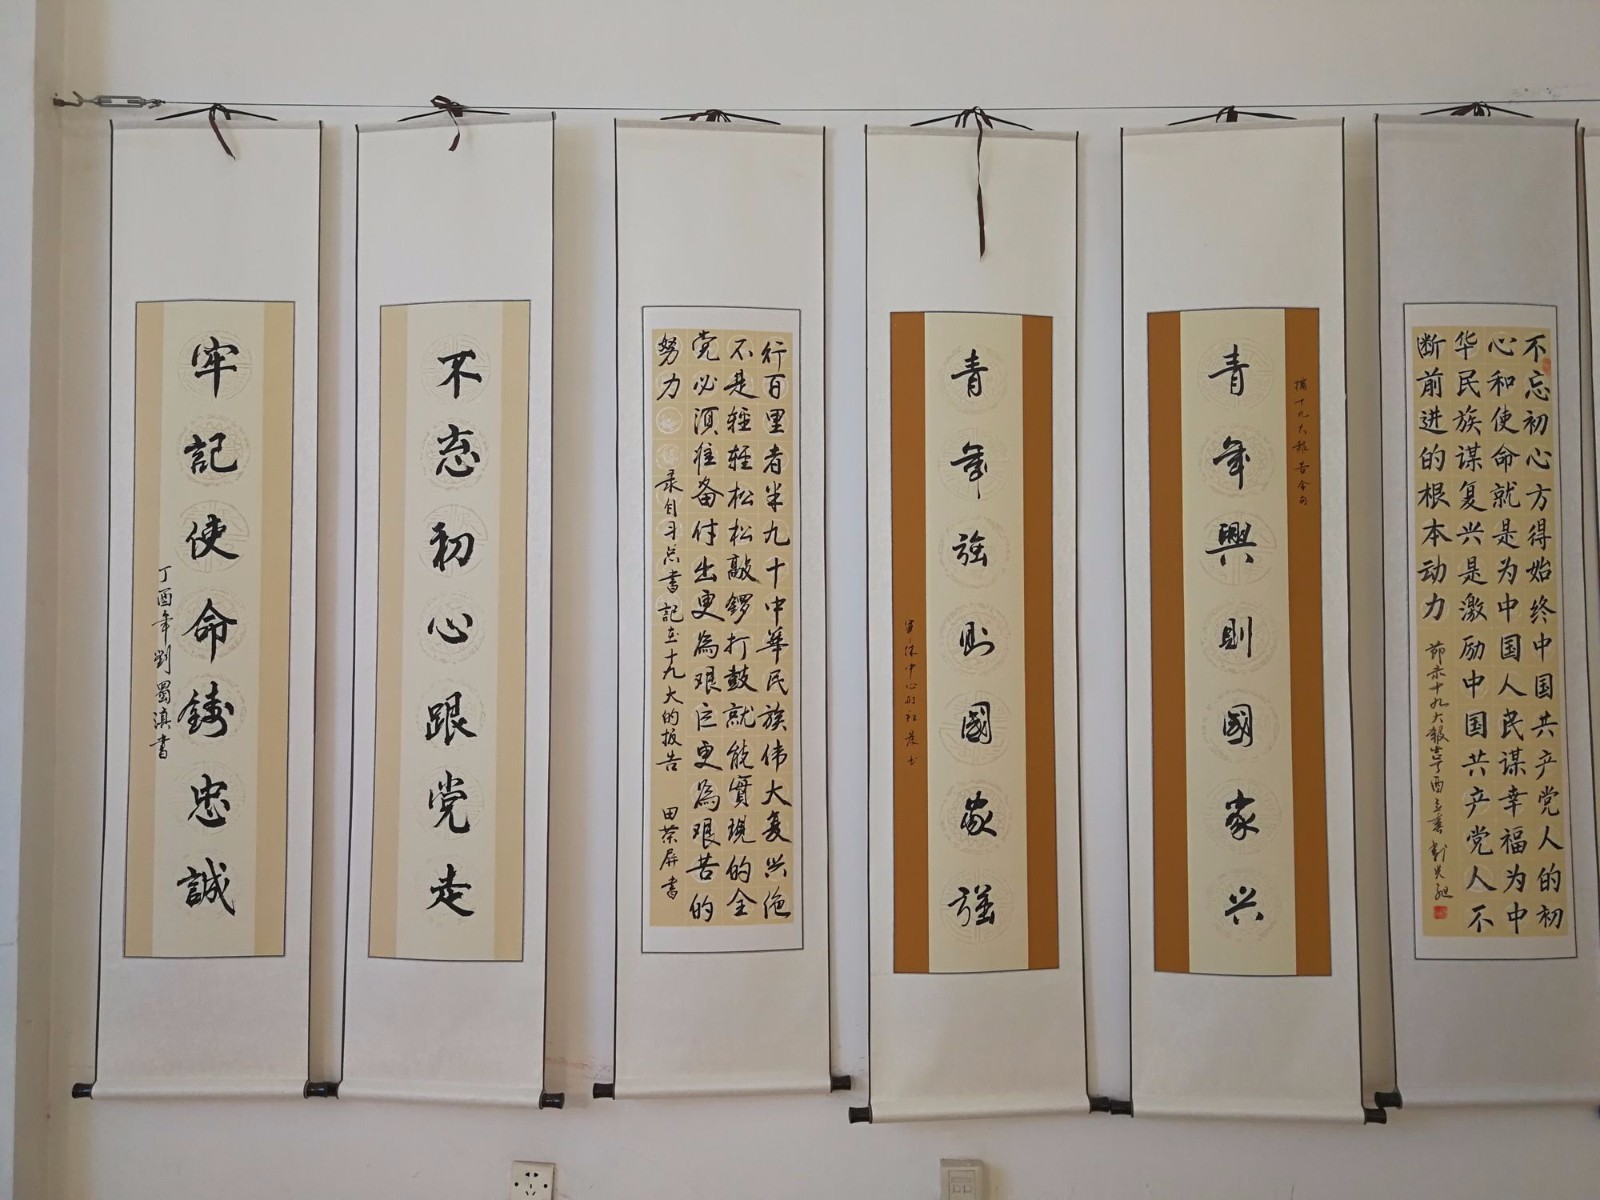 不忘初心方得始终中国共产党人的初
心和使命就是为中国人民谋幸福为中
华民族谋复兴是激励中国共产党人不
断前进的根本动力
節录十九大報告丁酉立春
摘十九大報告金句
青年興則國家兴
青年強則國家強
行百里者半九十中華民族伟大复兴绝
不是輕輕松松敲锣打鼓就能實現的全
党必須准备付出更為艰巨更為艰苦的
努力
录自习总書記在十九大的报告
田荣屏書
不忘初心跟党走
牢記使命鑄忠誠
丁酉年劉蜀滇書